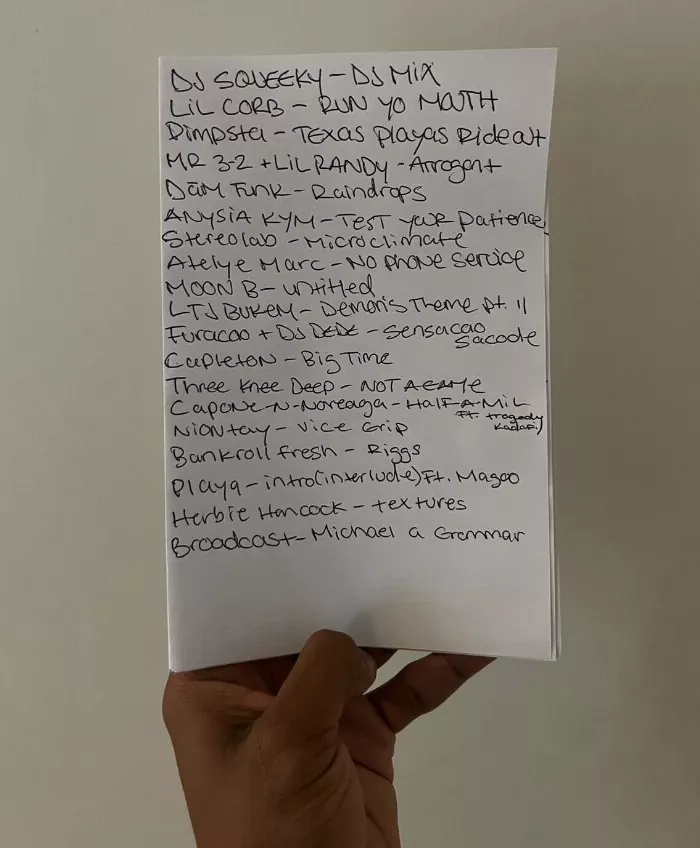 DJ SQUEEKY - DJ MIX
LIL CORB - RUN YO MOUTH
Dimpsta - TEXAS Playas Ride out
MR 3-2 + LIL RANDY - Arrogant
DāM FunK - Raindrops
ANYSIA KYM - TEST your patience
Stereolab - Microclimate
Atelye Marc - No phone service
MOON B - untitled
LTJ BUKEM - Demon's Theme pt. 11
Furacao + DJ DEDE - sensacao
sacode
Capleton - Big Time
Three Knee Deep - NOT A GAME
Capone-N-Noreaga - Half-A-MiL
Ft. tragedy
Kadafi)
Niontay - Vice Grip
Bankroll fresh - Riggs
Playa - intro(interlude) Ft. Magoo
Herbie Hancock - textures
Broadcast - Michael a Grammar